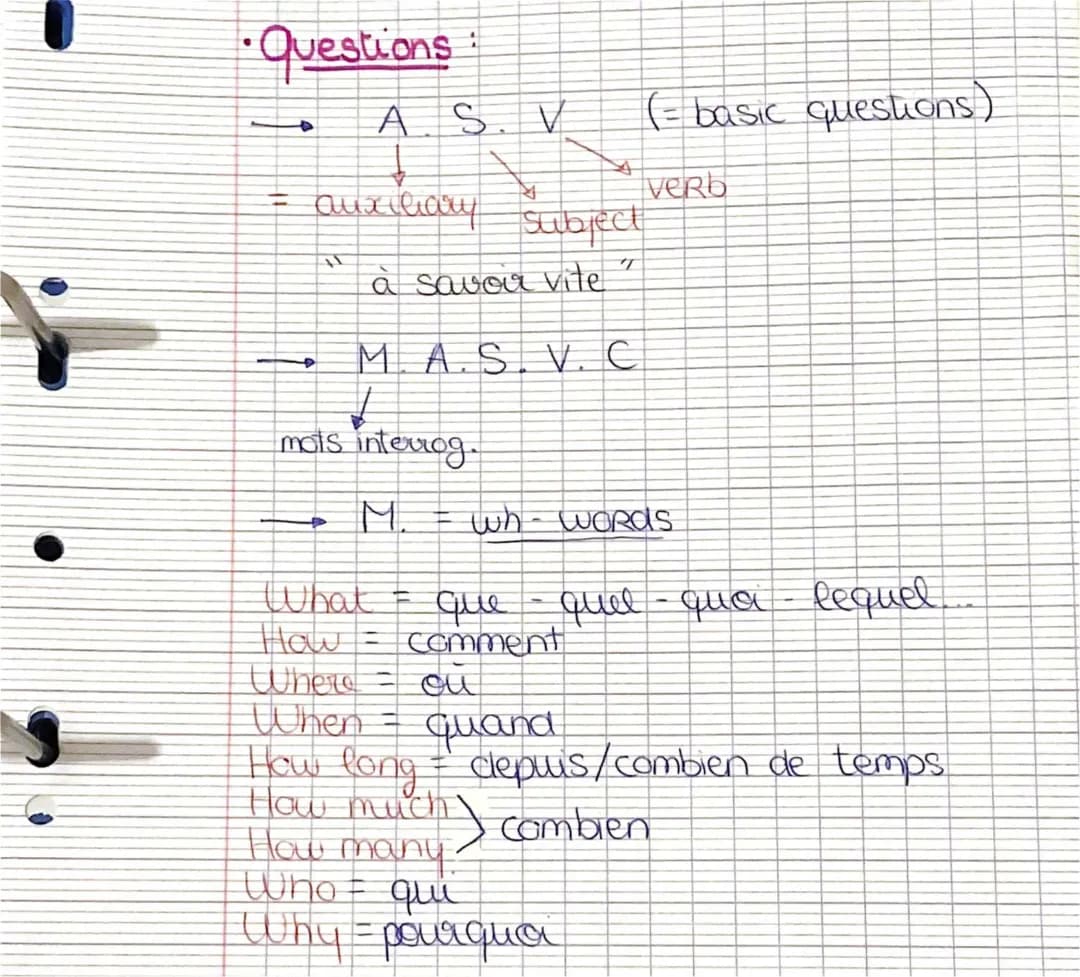 • Questions :
→ A. S. V (= basic questions)
= auxiliary subject verb
" à savoir vite "
→ M. A. S. V. C
mots interrog.
→ M. = wh- words
What = que - quel - quoi - lequel...
How = comment
Where = où
When = quand
How long = depuis/combien de temps
How much
How many > combien
Who = qui
Why = pourquoi